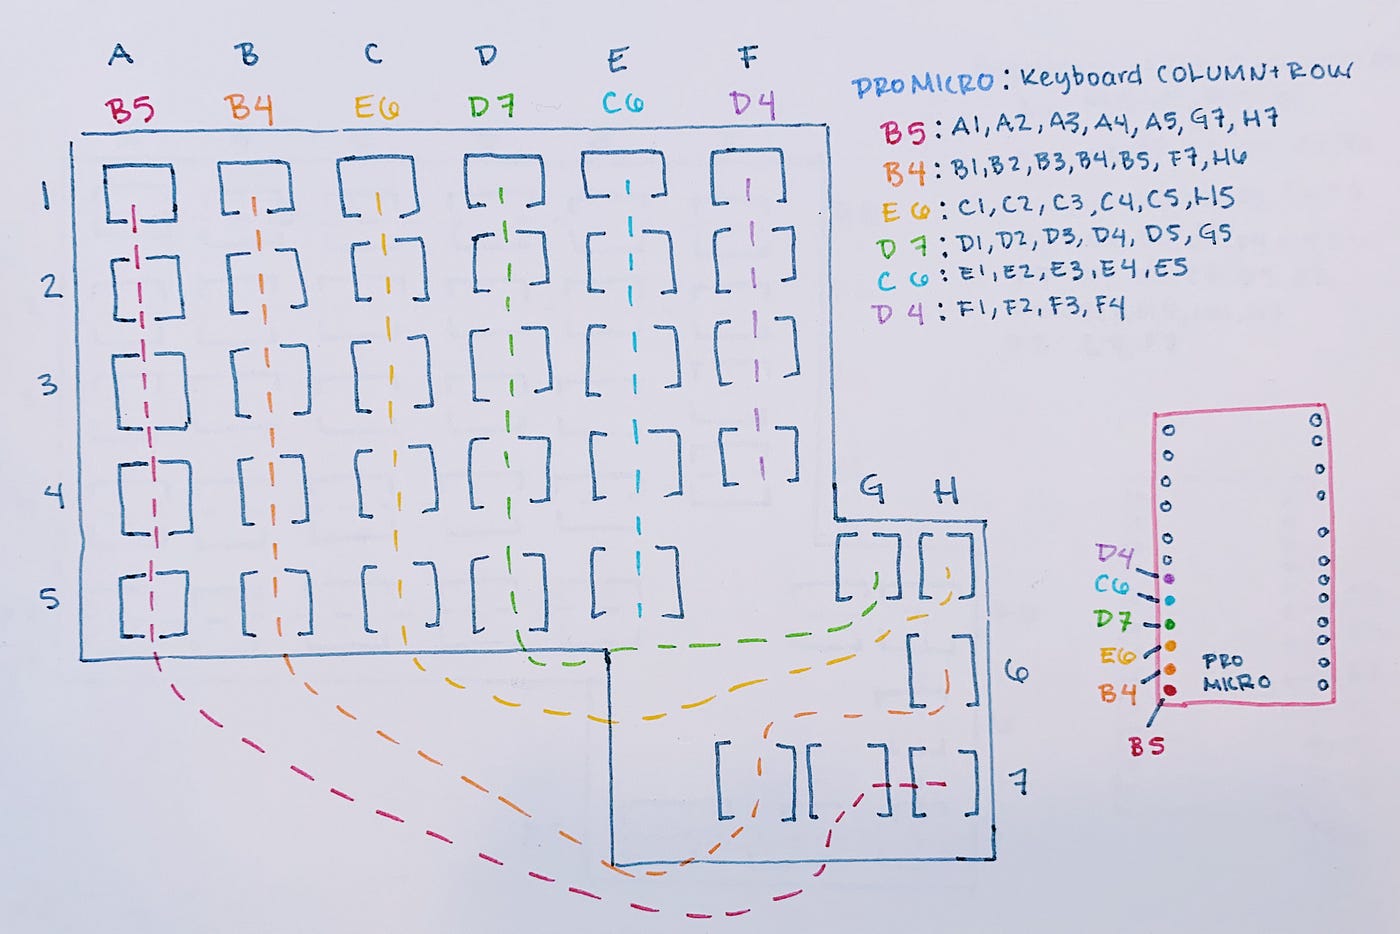 A B C D E F
B5 B4 E6 D7 C6 D4
PRO MICRO: Keyboard COLUMN + ROW
B5: A1, A2, A3, A4, A5, G7, H7
B4: B1, B2, B3, B4, B5, F7, H6
E6: C1, C2, C3, C4, C5, H5
D7: D1, D2, D3, D4, D5, G5
C6: E1, E2, E3, E4, E5
D4: F1, F2, F3, F4
1
2
3
4
5
G H
6
7
D4
C6
D7
E6
B4
B5
PRO
MICRO